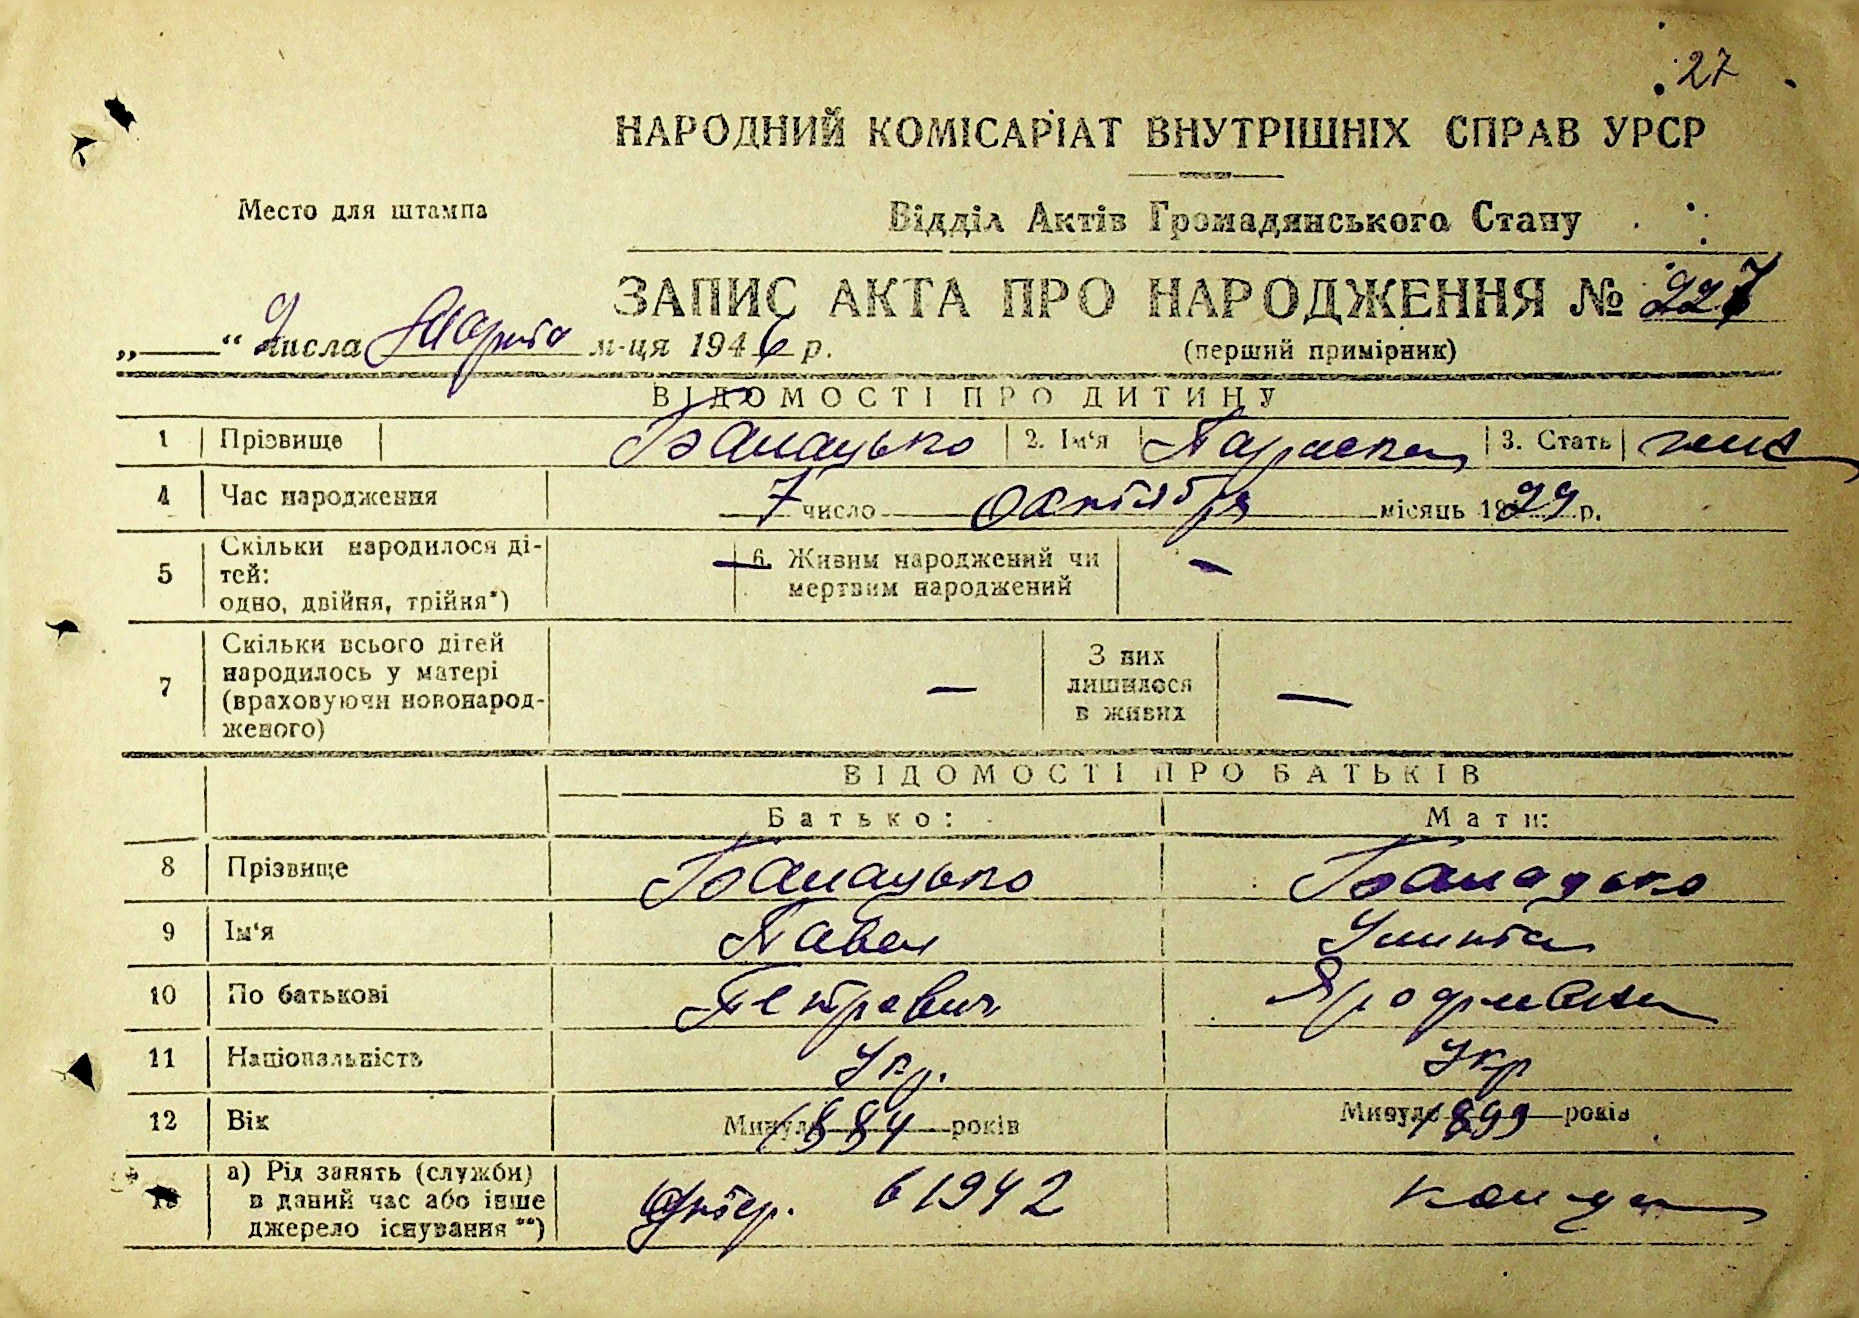 27
НАРОДНИЙ КОМІСАРІАТ ВНУТРІШНІХ СПРАВ УРСР
Место для штампа
Відділ Актів Громадянського Стану
ЗАПИС АКТА ПРО НАРОДЖЕННЯ № 227
„ “ 2 числа Марта м-ця 1946 р.
(перший примірник)
ВІДОМОСТІ ПРО ДИТИНУ
1 Прізвище Бамацько 2. Ім‘я Параска 3. Стать жен
4 Час народження 7 число октября місяць 1929 р.
5 Скільки народилося ді-
тей:
одно, двійня, трійня*) — 6. Живим народжений чи
мертвим народжений —
7 Скільки всього дітей
народилось у матері
(враховуючи новонарод-
женого) — З них
лишилося
в живих —
ВІДОМОСТІ ПРО БАТЬКІВ
Батько: Мати:
8 Прізвище Бамацько Бамацько
9 Ім‘я Павел
10 По батькові Петрович
11 Національність Укр. Укр
12 Вік Минуло 1884 років Минуло 1899 років
13 а) Рід занять (служби)
в даний час або інше
джерело існування **) умер. в 1942